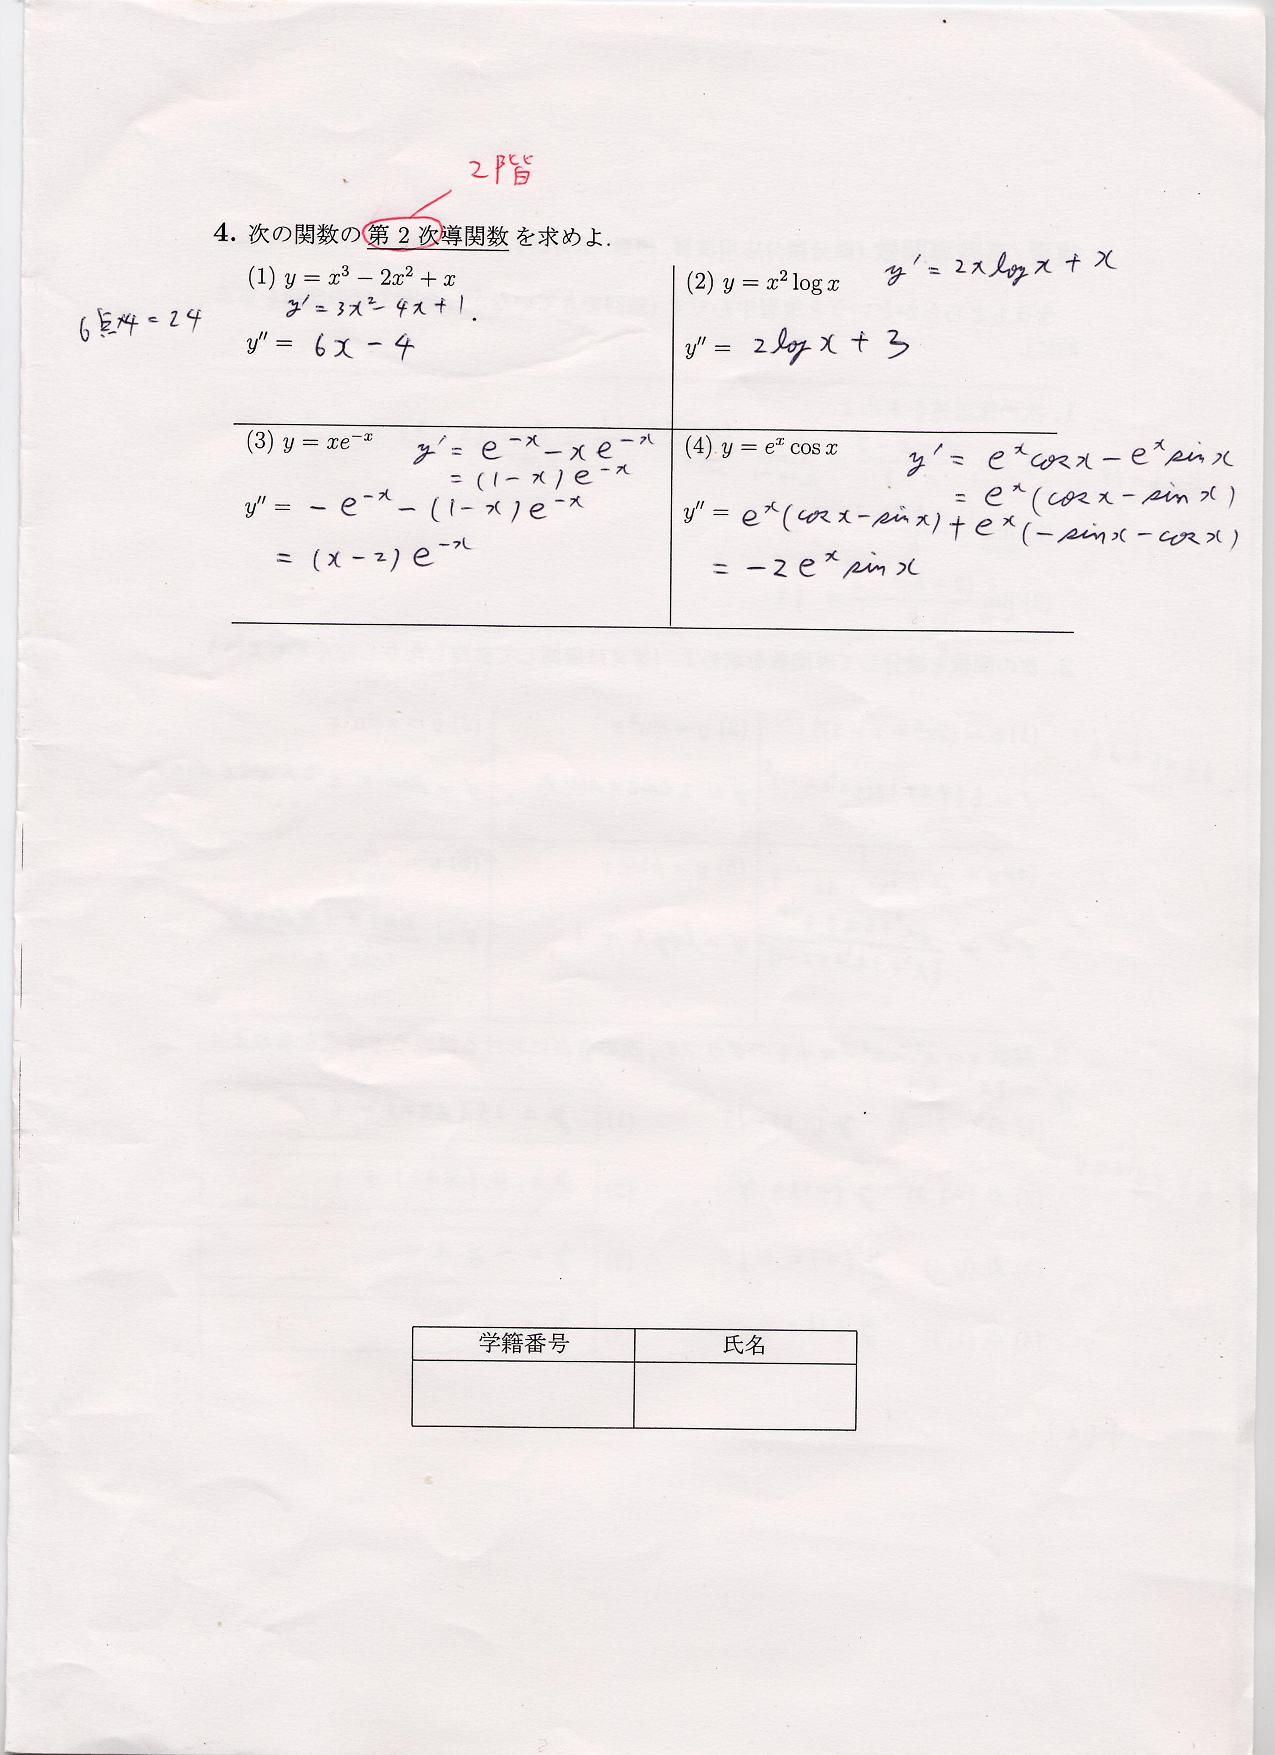 2階
4. 次の関数の 第 2 次導関数 を求めよ.
(1) y = x³ − 2x² + x
y′ = 3x² − 4x + 1.
6点×4 = 24
y″ = 6x − 4
(2) y = x² log x y′ = 2x log x + x
y″ = 2 log x + 3
(3) y = xe⁻ˣ y′ = e⁻ˣ − x e⁻ˣ
= (1 − x) e⁻ˣ
y″ = − e⁻ˣ − (1 − x) e⁻ˣ
= (x − 2) e⁻ˣ
(4) y = eˣ cos x y′ = eˣ cos x − eˣ sin x
= eˣ (cos x − sin x)
y″ = eˣ (cos x − sin x) + eˣ (− sin x − cos x)
= −2 eˣ sin x
学籍番号 氏名